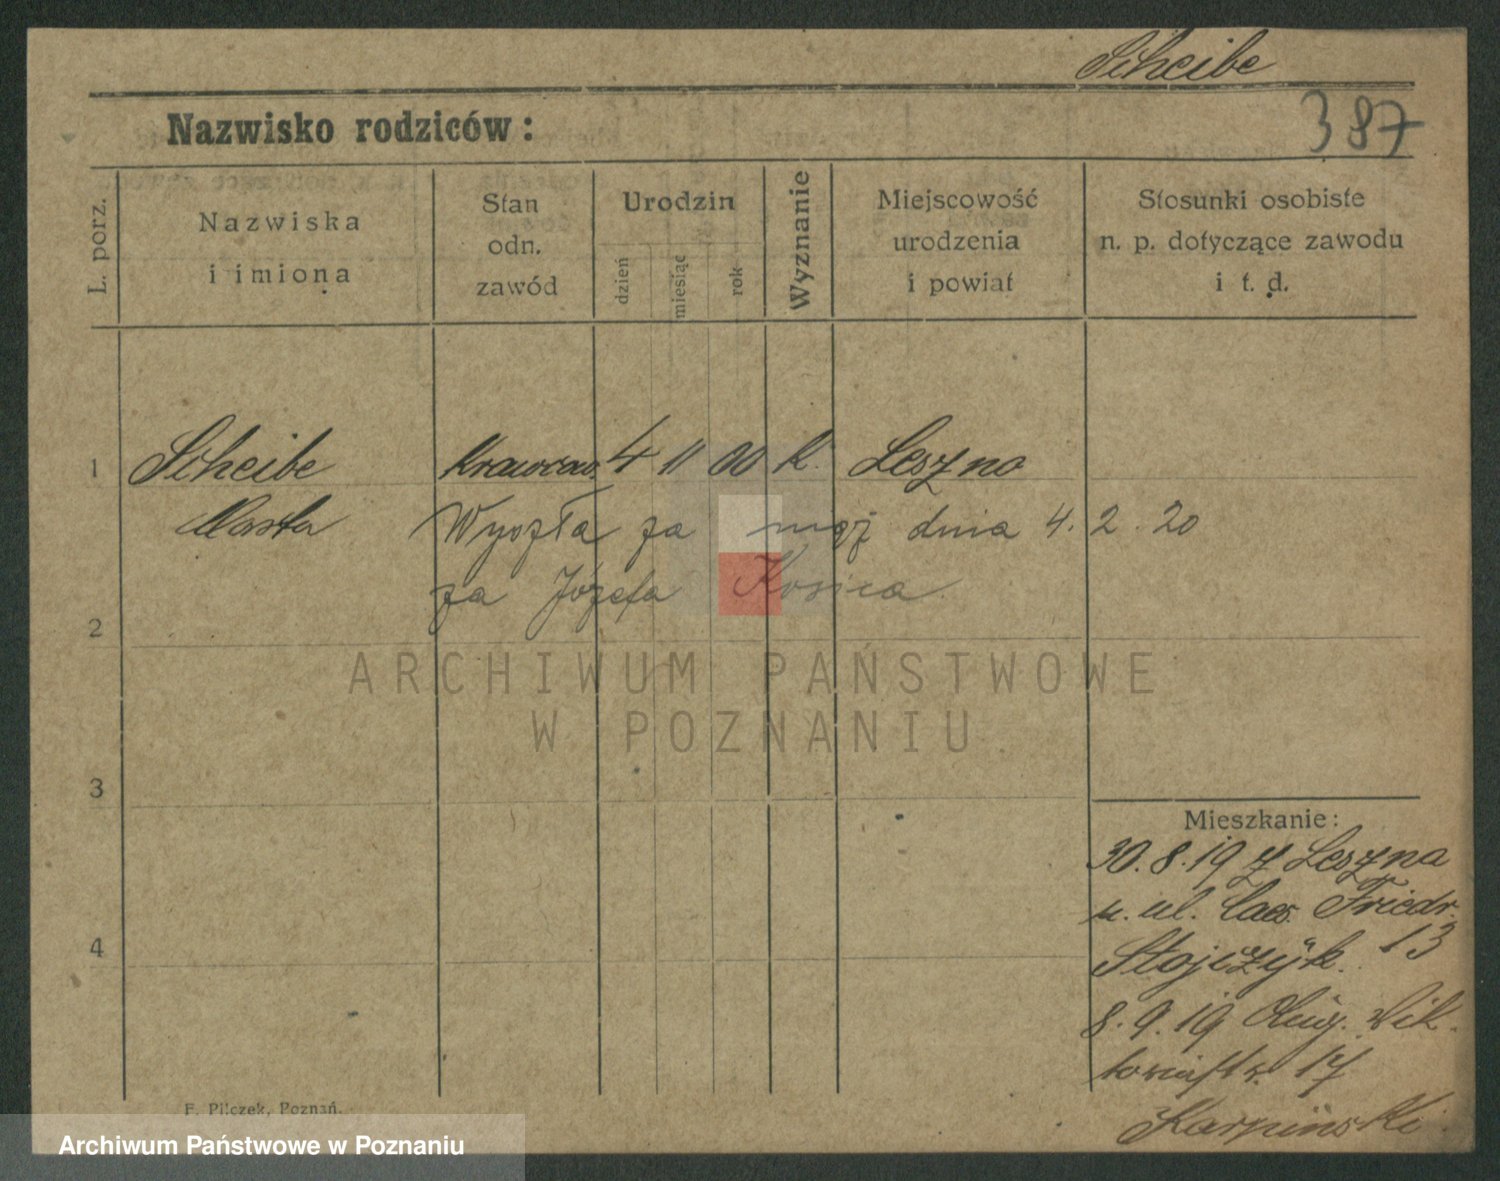 Scheibe
Nazwisko rodziców:
387
L. porz.
Nazwiska
i imiona
Stan
odn.
zawód
Urodzin
dzień
miesiąc
rok
Wyznanie
Miejscowość
urodzenia
i powiat
Stosunki osobiste
n. p. dotyczące zawodu
i t. d.
1 Scheibe Krawcow. 4 11 00 k. Leszno
Marta Wyszła za mąż dnia 4. 2. 20
za Józefa Kosica
2
ARCHIWUM PAŃSTWOWE
W POZNANIU
3
Mieszkanie:
30.8.19 z Leszna
u. ul. Caes. Friedr.
13
4
Stojczyk.
8.9.19 Aug. Wik-
toriastr. 17
Karpinski
F. Pilczek, Poznań.
Archiwum Państwowe w Poznaniu